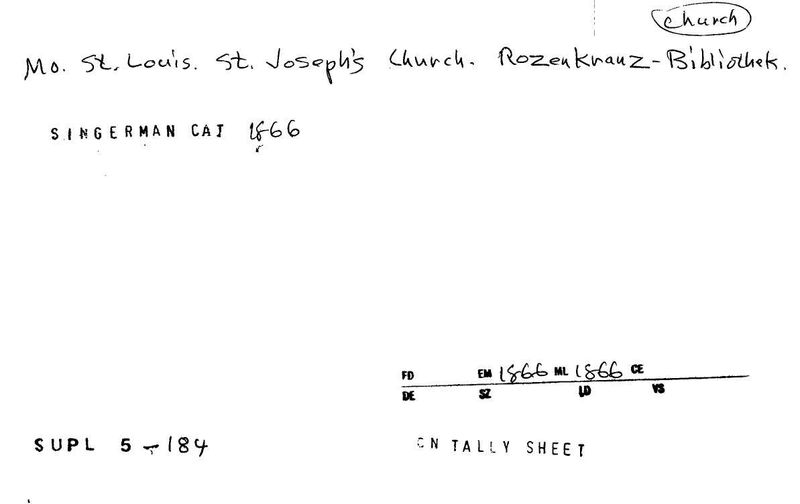 Church
Mo. St. Louis. St. Joseph's Church. Rozenkranz-Bibliothek.
SINGERMAN CAT 1866
FD EM 1866 ML 1866 CE
DE SZ LD VS
SUPL 5-184 ON TALLY SHEET